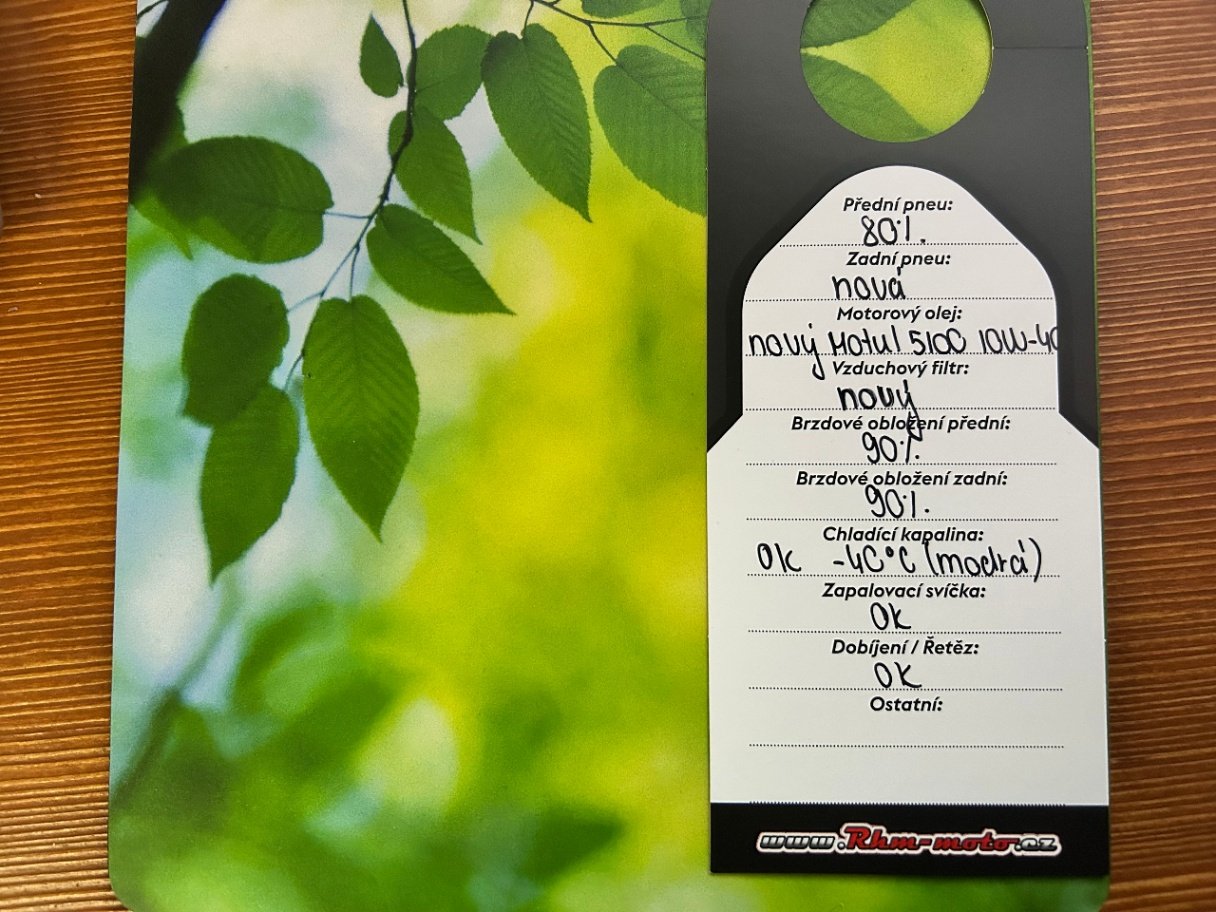 Přední pneu:
80%.
Zadní pneu:
nová
Motorový olej:
nový Motul 5100 10W-40
Vzduchový filtr:
nový
Brzdové obložení přední:
90%.
Brzdové obložení zadní:
90%.
Chladící kapalina:
Ok -40°C (modrá)
Zapalovací svíčka:
Ok
Dobíjení / Řetěz:
OK
Ostatní:
www.Rhm-moto.cz